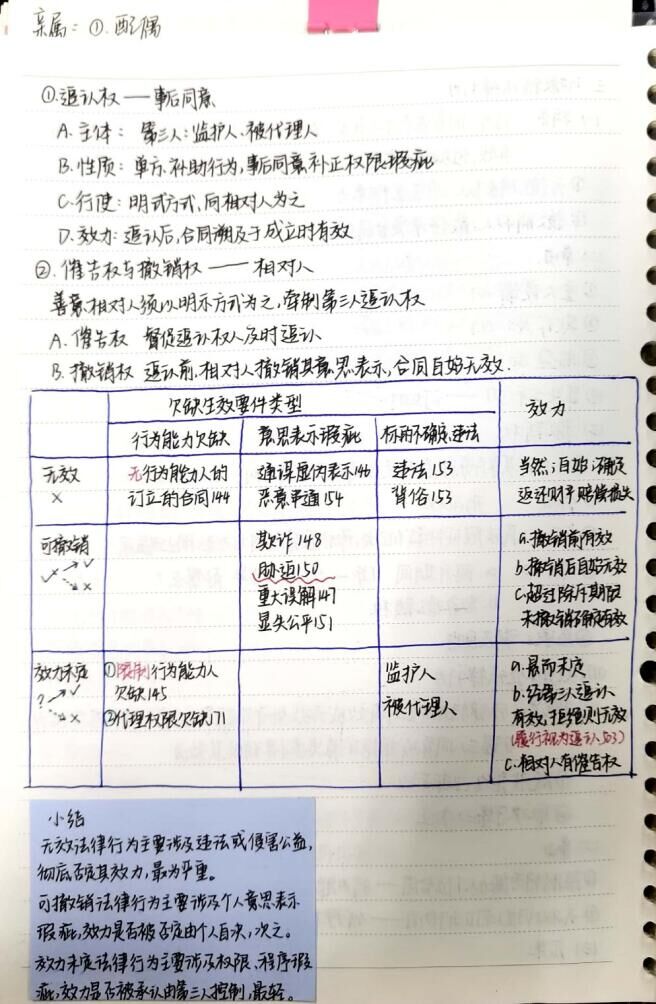 亲属：①.配偶
①追认权——事后同意
A.主体：第三人：监护人、被代理人
B.性质：单方、补助行为，事后同意补正权限瑕疵
C.行使：明式方式，向相对人为之
D.效力：追认后，合同溯及于成立时有效
②.催告权与撤销权——相对人
善意相对人须以明示方式为之，牵制第三人追认权
A.催告权 督促追认权人及时追认
B.撤销权 追认前，相对人撤销其意思表示，合同自始无效.
欠缺生效要件类型 效力
行为能力欠缺 意思表示瑕疵 标的不确定、违法
无效 无行为能力人的 通谋虚伪表示146 违法153 当然；自始；确定
× 订立的合同144 恶意串通154 背俗153 返还财产赔偿损失
可撤销 欺诈148 a.撤销前有效
胁迫150 b.撤销后自始无效
重大误解147 c.超过除斥期间
显失公平151 未撤销确定有效
效力未定 ①限制行为能力人 监护人 a.悬而未定
? 欠缺145 被代理人 b.经第三人追认
②代理权限欠缺171 有效，拒绝则无效
(履行视为追认503)
c.相对人有催告权
小结
无效法律行为主要涉及违法或侵害公益，
彻底否定其效力，最为严重。
可撤销法律行为主要涉及个人意思表示
瑕疵，效力是否被否定由个人自决，次之。
效力未定法律行为主要涉及权限、程序瑕
疵，效力是否被承认由第三人控制，最轻。